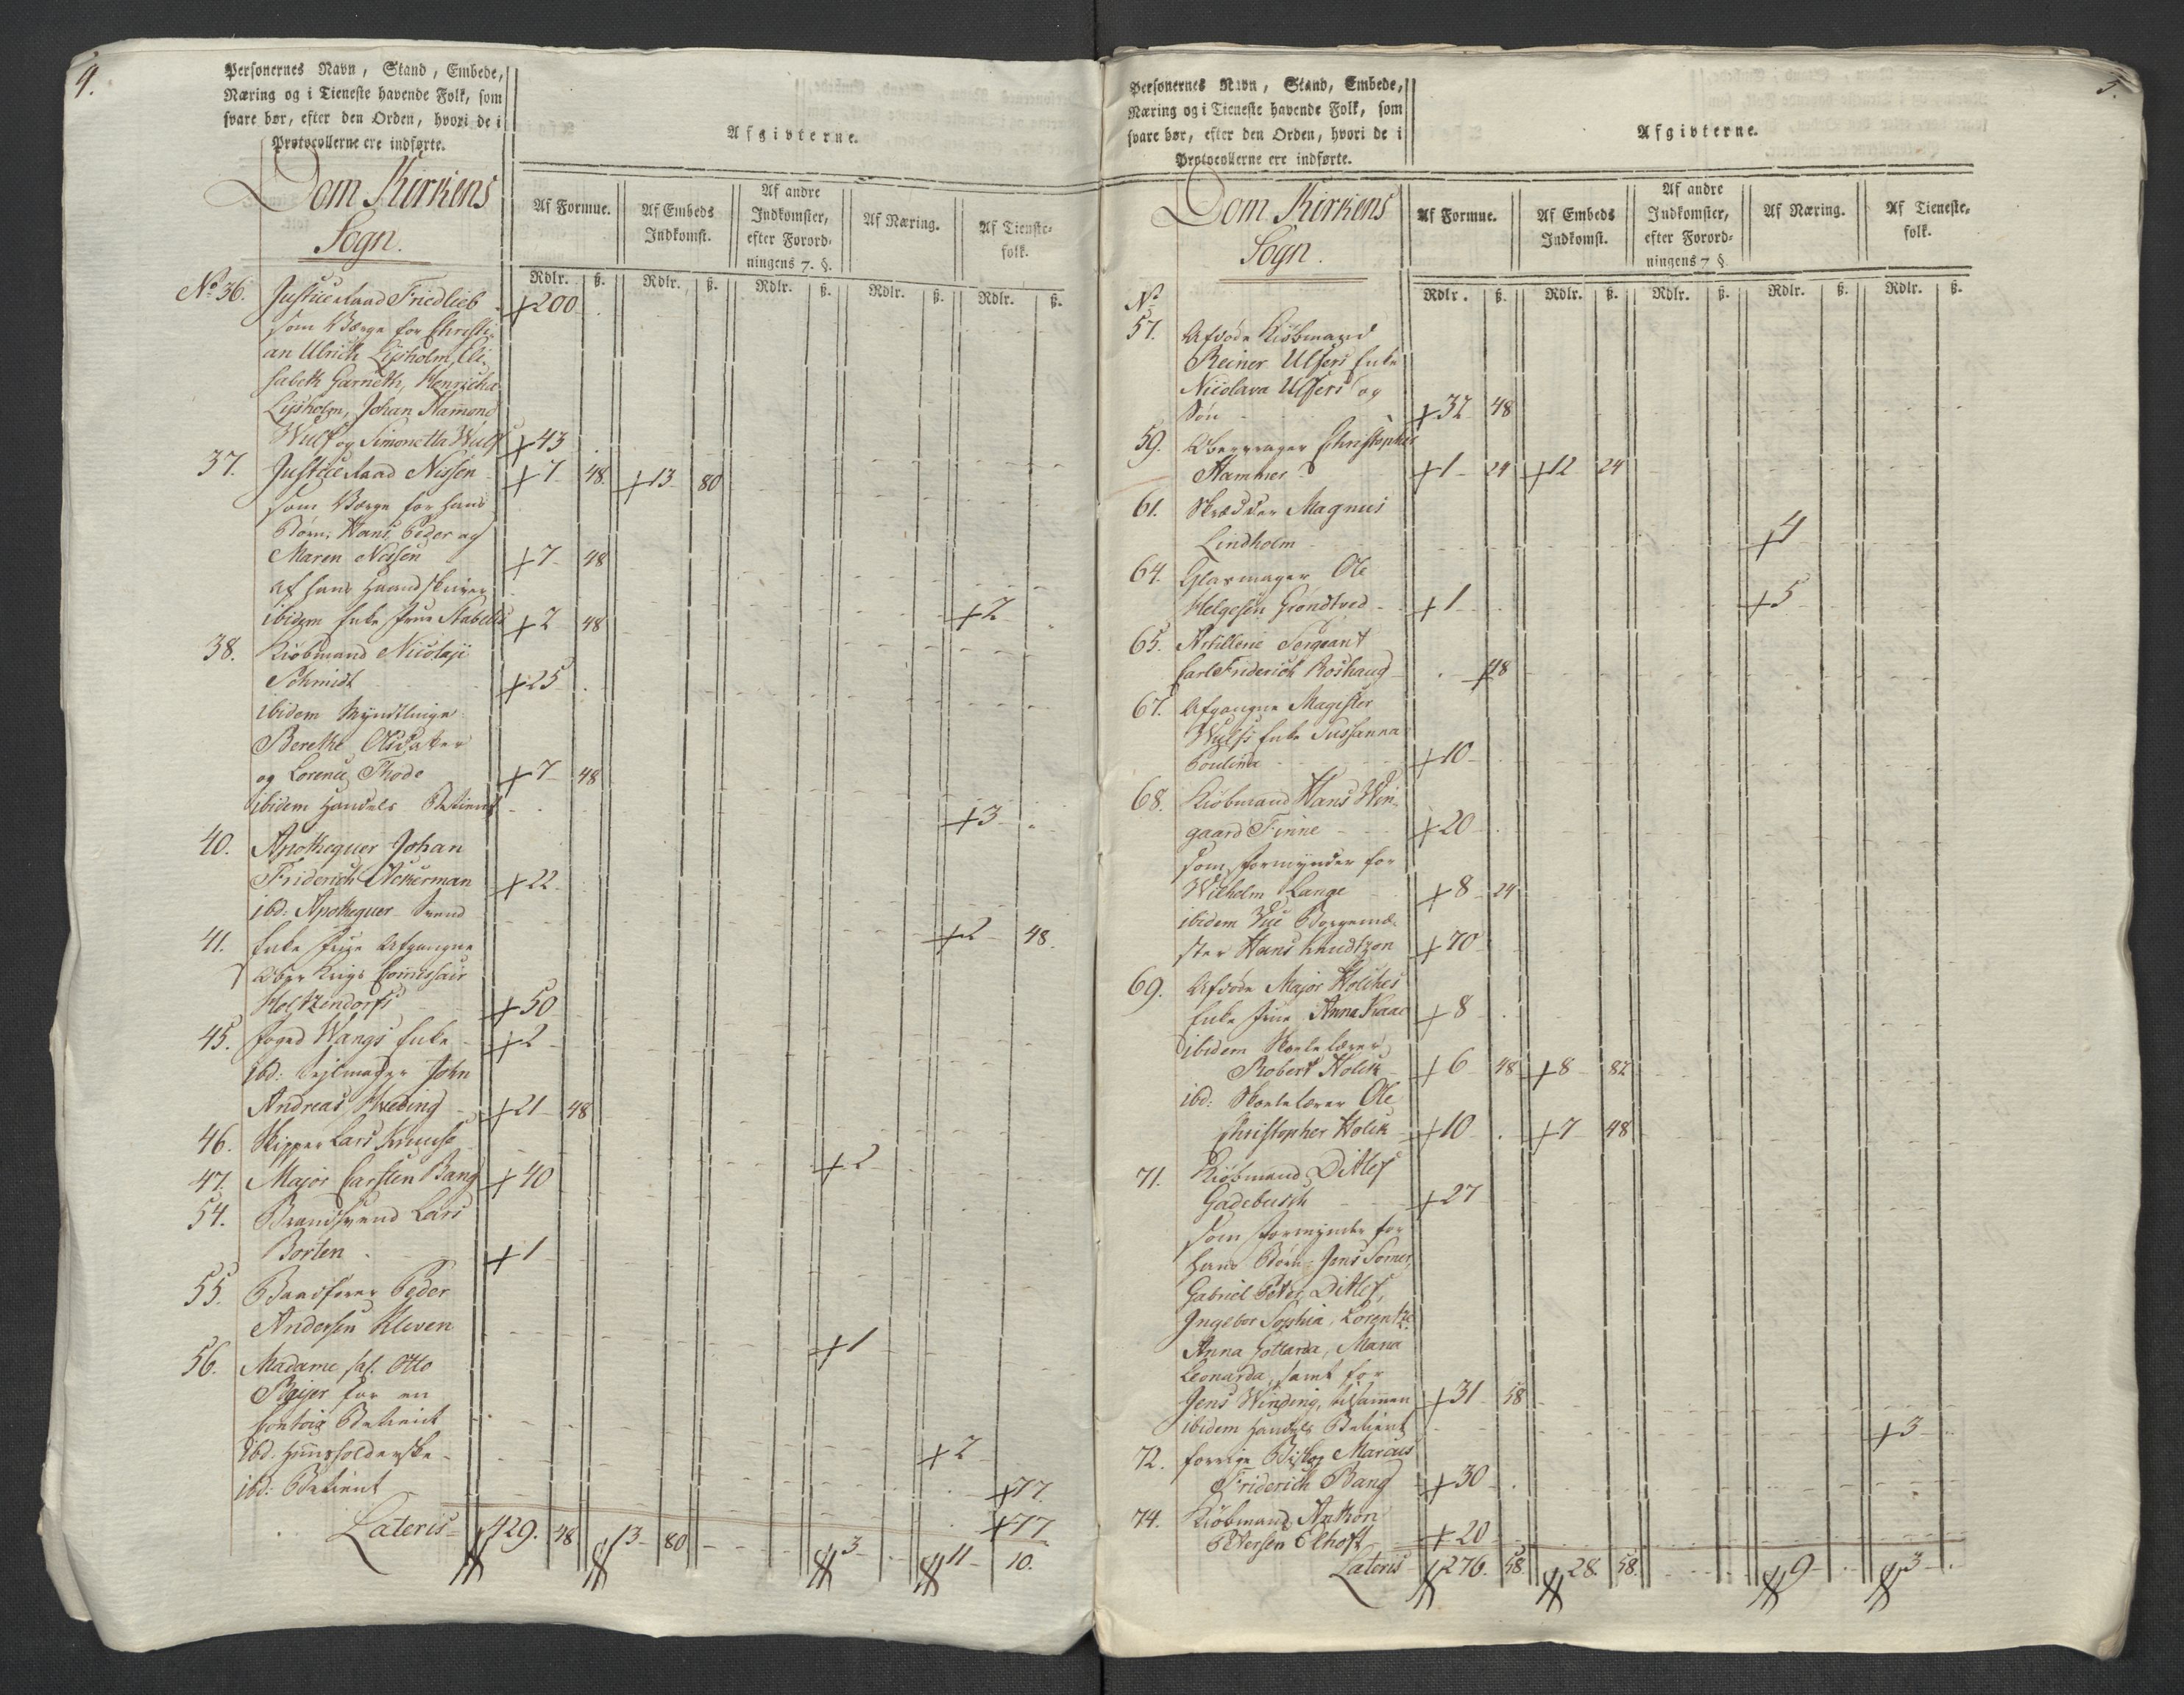 4.
Personernes Navn, Stand, Embede,
Næring og i Tieneste havende Folk, som
svare bør, efter den Orden, hvori de i
Protocollerne ere indførte.
Afgivterne.
Dom Kirkens
Sogn.
Af Formue.
Af Embeds
Indkomst.
Af andre
Indkomster,
efter Forord-
ningens 7. §.
Af Næring.
Af Tieneste-
folk.
Rdlr. ß. Rdlr. ß. Rdlr. ß. Rdlr. ß. Rdlr. ß.
No 36. Justice Raad Friedlieb +200
som Værge for Christi-
an Ulrich Lysholm, Eli-
sabeth Garneth, Henricha
Lysholm, Johan Hammond
Wulf og Simonetta Wulf +43
37. Justice Raad Nissen +7 48 +13 80
som Værge for hans
Børn: Hans, Peder og
Maren Nissen +7 48
af hans Haandskriver
ibidem Enke Frue Stabell +2 48 +2
38. Kiøbmand Nicolaji
Schmidt +25
ibidem Myndtlinge
Berethe Olsdatter
og Lorence Thode +7 48
ibidem Handels Betient +3
40. Apothequer Johan
Friderich Ackerman +22
ibd: Apothequer Svend +2 48.
41. Enke Frue Afgangne
Ober Krigs Comissair
Holtzendorfs +50
45. Foged Wangs Enke +2
ibd: Sejlmager John
Andreas Hveding +21 48
46. Skipper Lars Kruuse +2
47. Major Carsten Bang +40
54. Brandsvend Lars
Borten +1
55. Baadfører Peder
Andersen Kleven +1
56. Madame sal. Otto
Beijer for en
Contoir Betient +2
ibd. Huusholderske +77
ibd: Betient +77
Lateris 429. 48 13 80 3 11 10.
5.
Personernes Navn, Stand, Embede,
Næring og i Tieneste havende Folk, som
svare bør, efter den Orden, hvori de i
Protocollerne ere indførte.
Afgivterne.
Dom Kirkens
Sogn.
Af Formue.
Af Embeds
Indkomst.
Af andre
Indkomster,
efter Forord-
ningens 7 §.
Af Næring.
Af Tieneste-
folk.
Rdlr. ß. Rdlr. ß. Rdlr. ß. Rdlr. ß. Rdlr. ß.
No
57. Afdøde Kiøbmand
Reiner Ulfers Enke
Nicolava Ulfers og
Søn +32 48
59. Christopher
Hammer +1 24 +12 24
61. Skrædder Magnus
Lindholm +4
64. Glasmager Ole
Helgesen Grondtved +1 +5
65. Artillerie Sergeant
Carl Friderich Roshaug 48
67. Afgangne Magister
Wulfs Enke Sussanna
Poulina +10
68. Kiøbmand Hans Win-
gaard Finne +20
som Formynder for
Wilhelm Lange +8 24
ibidem Vice Borgeme-
ster Hans Knudtzon +70
69. Afdøde Major Holchs
Enke Frue Anna Kaae +8
ibidem Skolelærer
Robert Holck +6 48 +8 82
ibd: Skolelærer Ole
Christopher Holck +10 +7 48
71. Kiøbmand Ditlef
Gadebusch +27
som Formynder for
hans Børn: Jens Somer,
Gabriel Peter, Ditlef,
Ingebor Sophia, Lorentze
Anna Gottarda, Maria
Leonarda, samt for
Jens Winding, tilsammen +31 58
ibidem Handels Betient +3
72. forrige Biskop Marcus
Friderich Bang +30
74. Kiøbmand Anthon
Petersen Elhoft +20
Lateris 276. 58 28. 58. 9 3